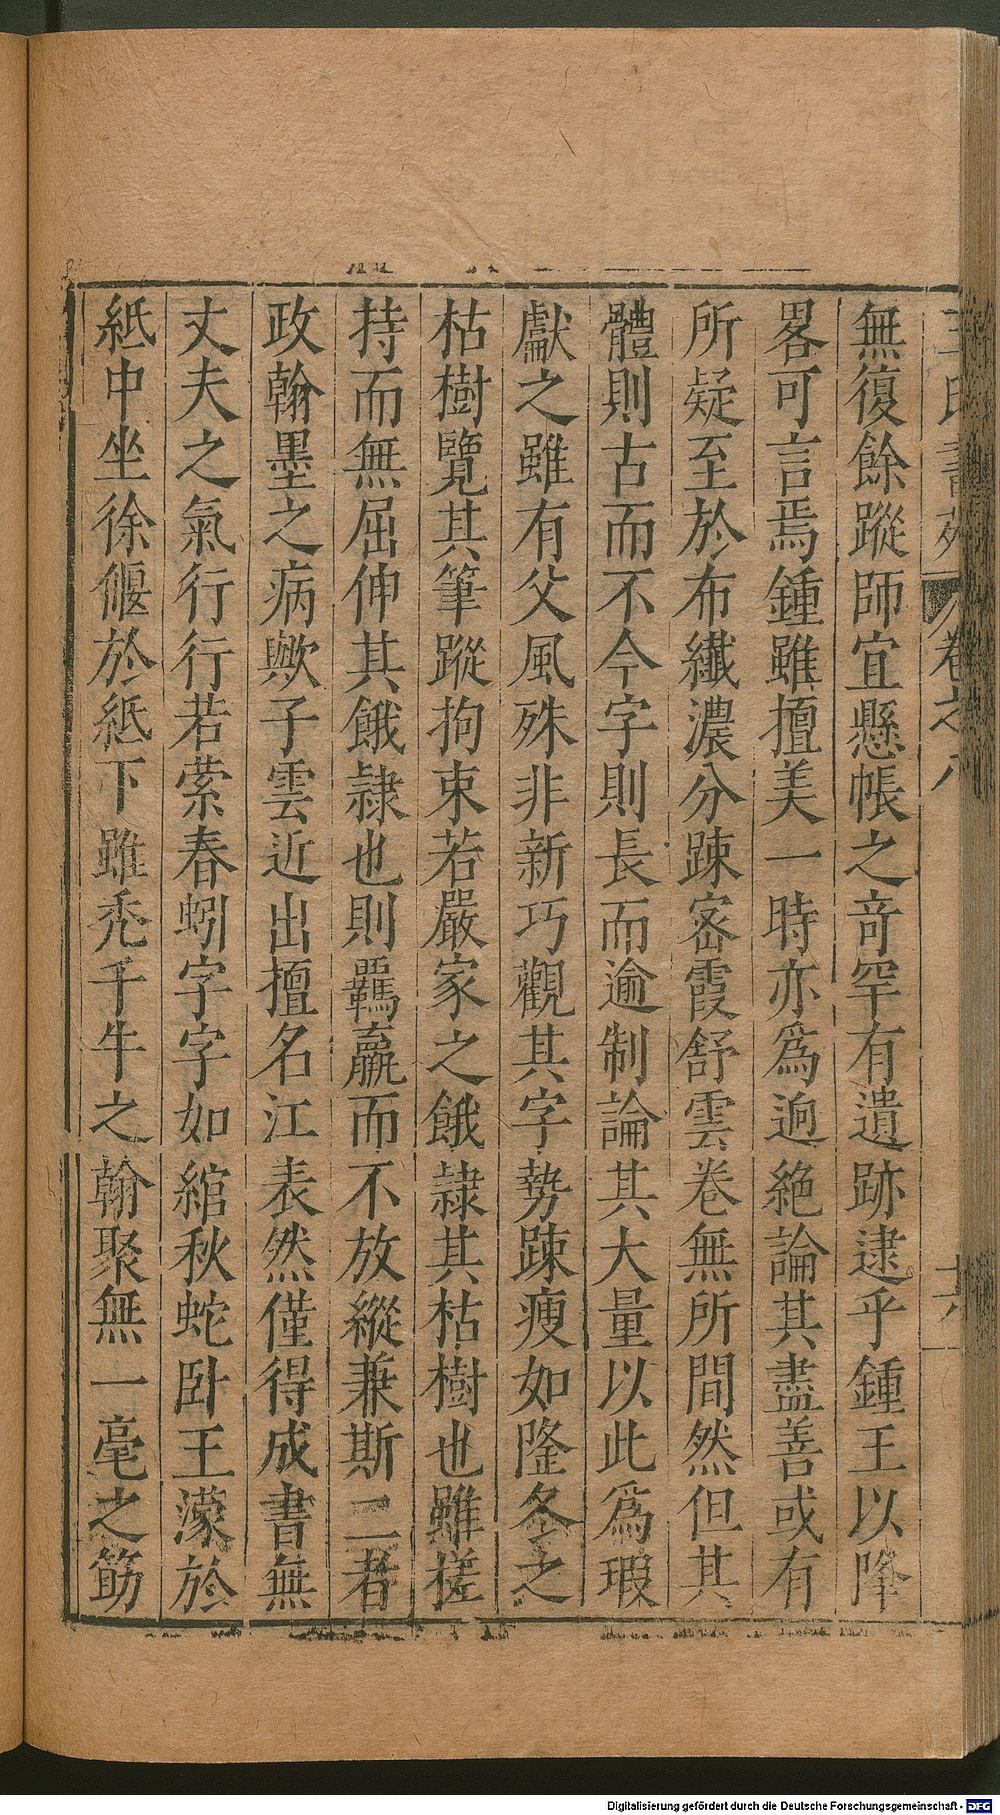 無復餘蹤師宜懸帳之竒罕有遺跡逮乎鍾王以降
畧可言焉鍾雖擅美一時亦爲逈絶論其盡善或有
所疑至於布纎濃分踈宻霞舒雲卷無所間然但其
體則古而不今字則長而逾制論其大量以此爲瑕
獻之雖有父風殊非新巧觀其字勢踈瘦如隆冬之
枯樹覽其筆蹤拘束若嚴家之餓隷其枯樹也雖槎
持而無屈伸其餓隷也則羈羸而不放縱兼斯二者
政翰墨之病歟子雲近出擅名江表然僅得成書無
丈夫之氣行行若縈春蚓字字如綰秋蛇卧王濛於
紙中坐徐偃於紙下雖秃千牛之翰聚無一毫之筯
王氏書苑 卷之八 十六
Digitalisierung gefördert durch die Deutsche Forschungsgemeinschaft - DFG